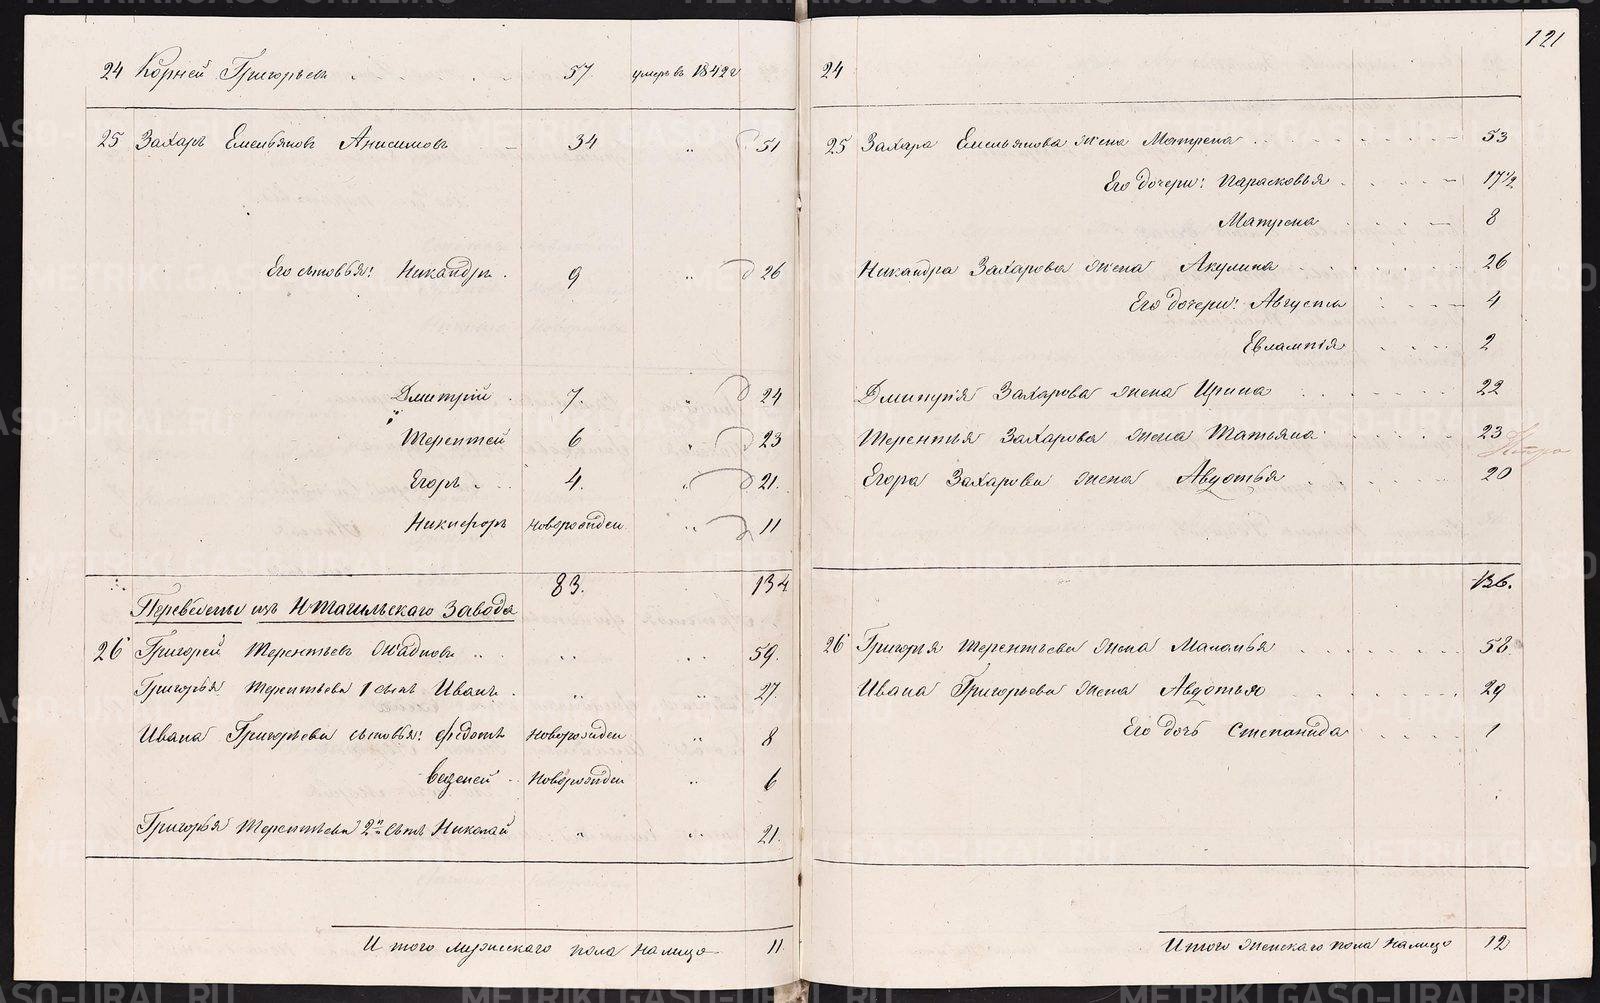 121
24 Корней Григорьевъ 57. умеръ въ 1842 г
24
25 Захаръ Емельяновъ Анисимовъ 34 " 51
Его сыновья: Никандръ 9 " 26
Дмитрій 7. " 24
Терентей 6 " 23
Егоръ 4. " 21.
Никифоръ новорожден " 11
83. 134
Переведены изъ Н Тагильскаго Завода
26 Григорей Терентьевъ 59.
Григорья Терентьева 1 сынъ Иванъ " 27.
Ивана Григорьева сыновья: Федотъ новорожден " 8
новорожден " 6
Григорья Терентьева 2й сынъ Николай " 21.
Итого мужескаго пола налицо 11
25 Захара Емельянова жена Матрена 53
Его дочери: Парасковья 17½
Матрена 8
Никандра Захарова жена Акулина 26
Его дочери: Августа 4
Евлампія 2
Дмитрія Захарова жена Ирина 22
Терентья Захарова жена Татьяна 23
Егора Захарова жена Авдотья 20
136.
26 Григорья Терентьева жена Маланья 58
Ивана Григорьева жена Авдотья 29
Его дочь Степанида 1
Итого женскаго пола налицо 12
METRIKI.GASO-URAL.RU